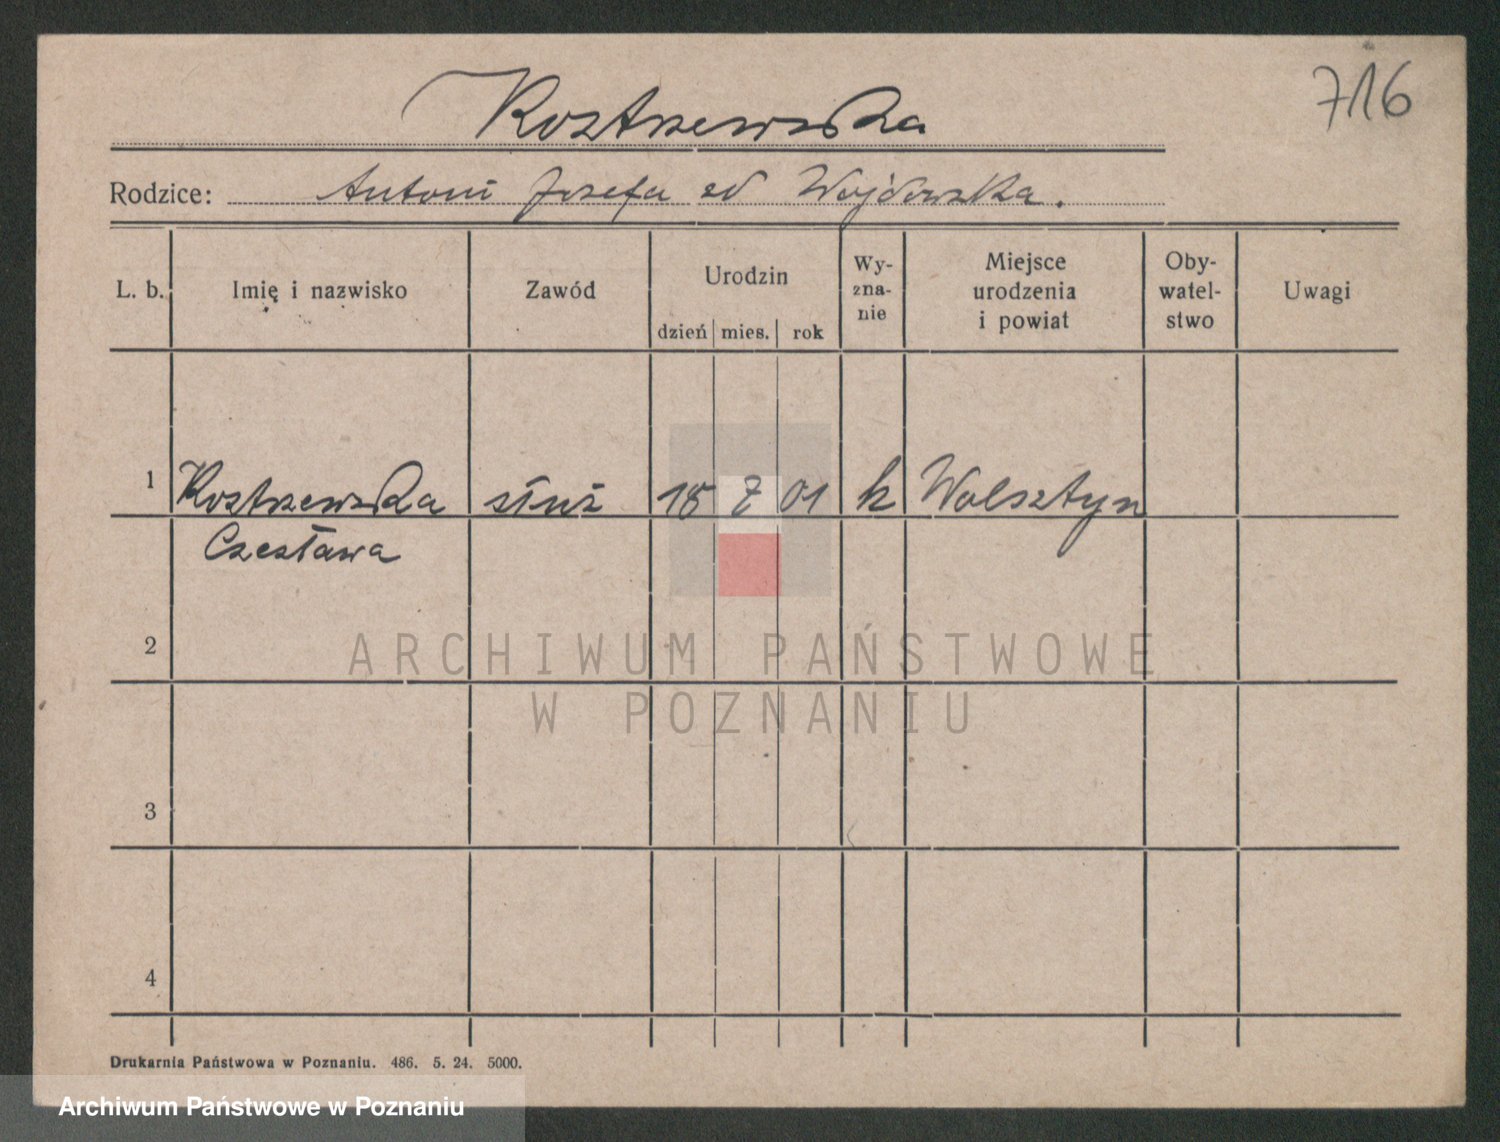 716
Kostrzewska
Rodzice: Antoni Josefa zd Wojdowska.
L. b. Imię i nazwisko Zawód Urodzin dzień mies. rok Wy-zna-nie Miejsce urodzenia i powiat Oby-watel-stwo Uwagi
1 Kostrzewska służ 18 7 01 k Wolsztyn
Czesława
2
ARCHIWUM PAŃSTWOWE
W POZNANIU
3
4
Drukarnia Państwowa w Poznaniu. 486. 5. 24. 5000.
Archiwum Państwowe w Poznaniu